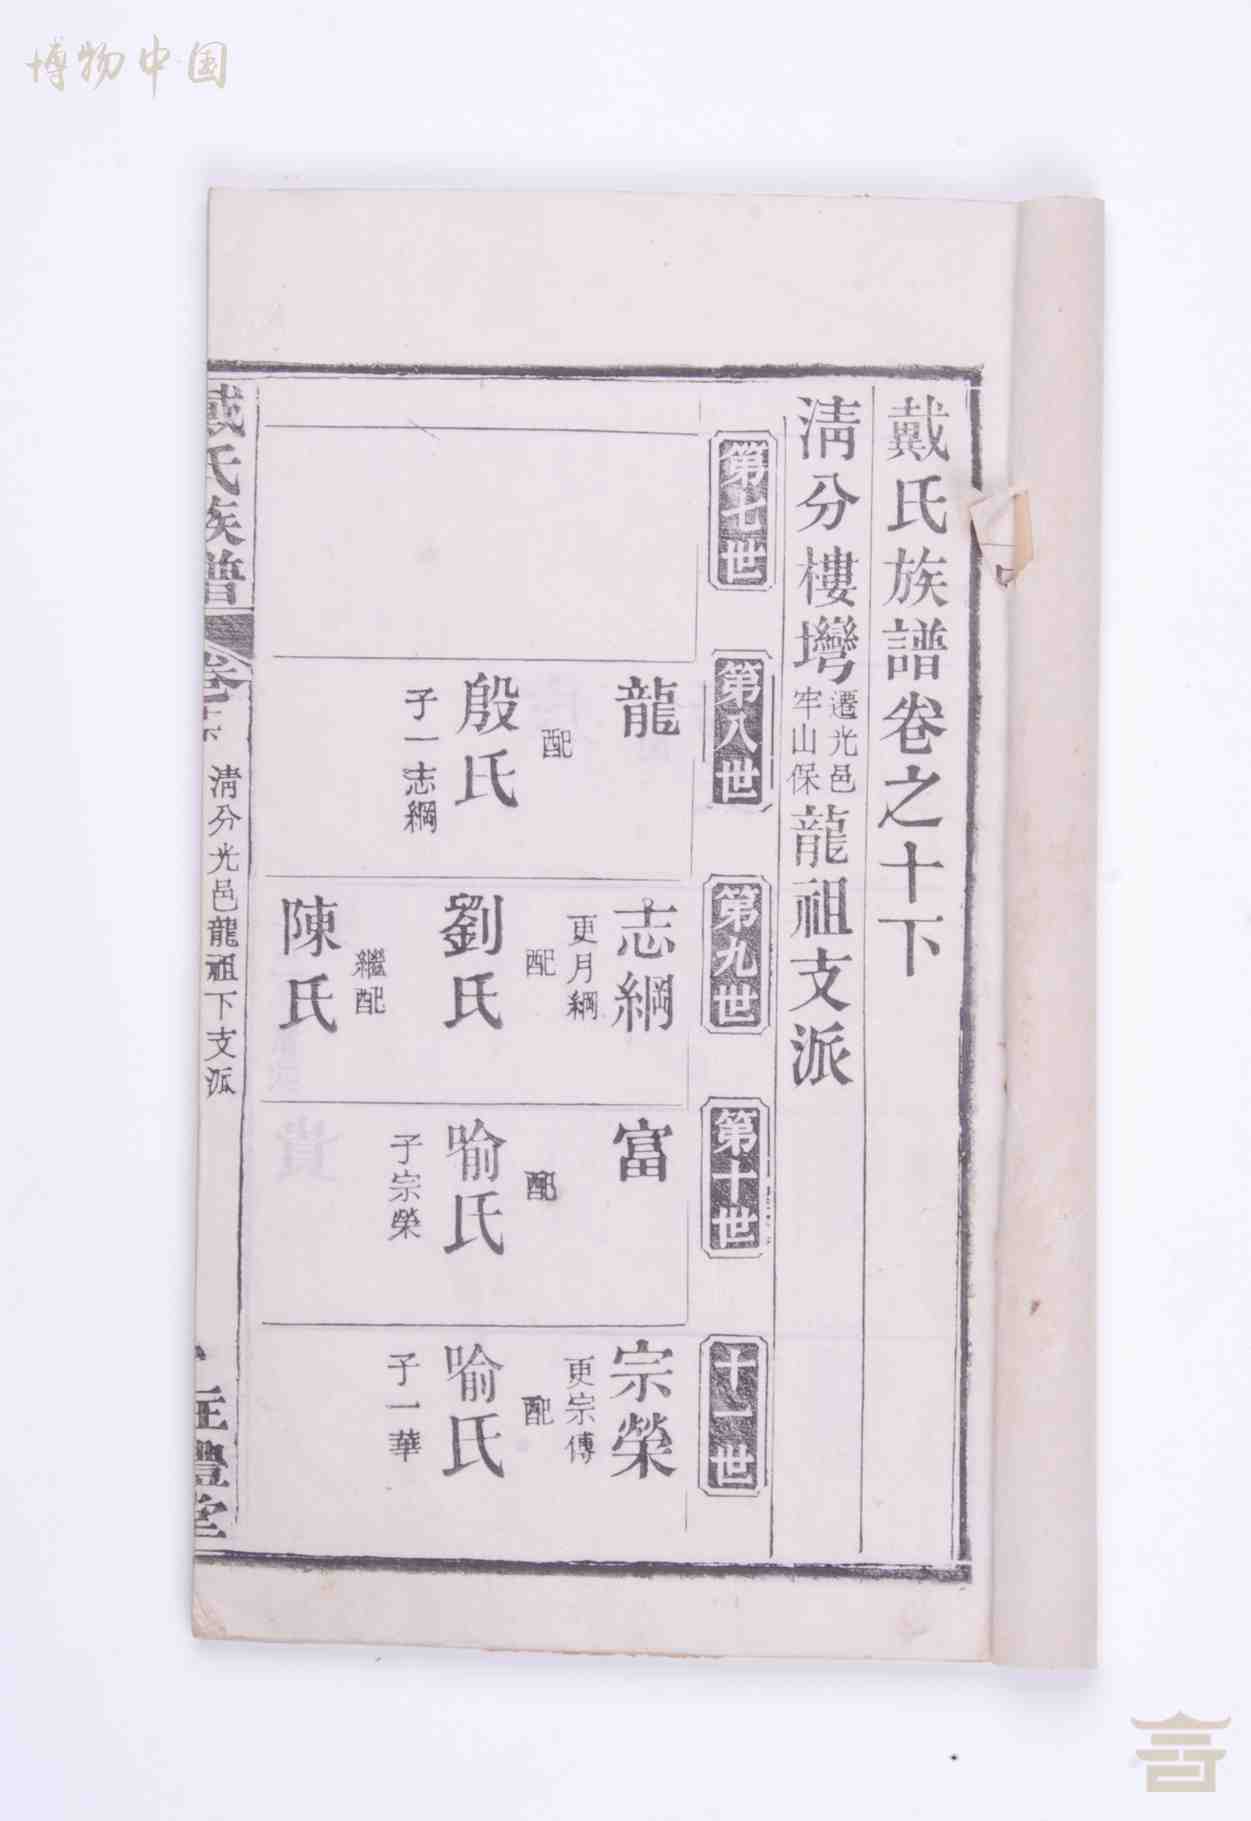 博物中国
戴氏族譜卷之十下
淸分樓塆遷光邑牢山保龍祖支派
第七世
第八世
龍
配
殷氏
子一志綱
第九世
志綱
更月綱
配
劉氏
繼配
陳氏
第十世
富
配
喻氏
子宗榮
十一世
宗榮
更宗傅
配
喻氏
子一華
戴氏族譜
卷十
淸分光邑龍祖下支派
禮堂